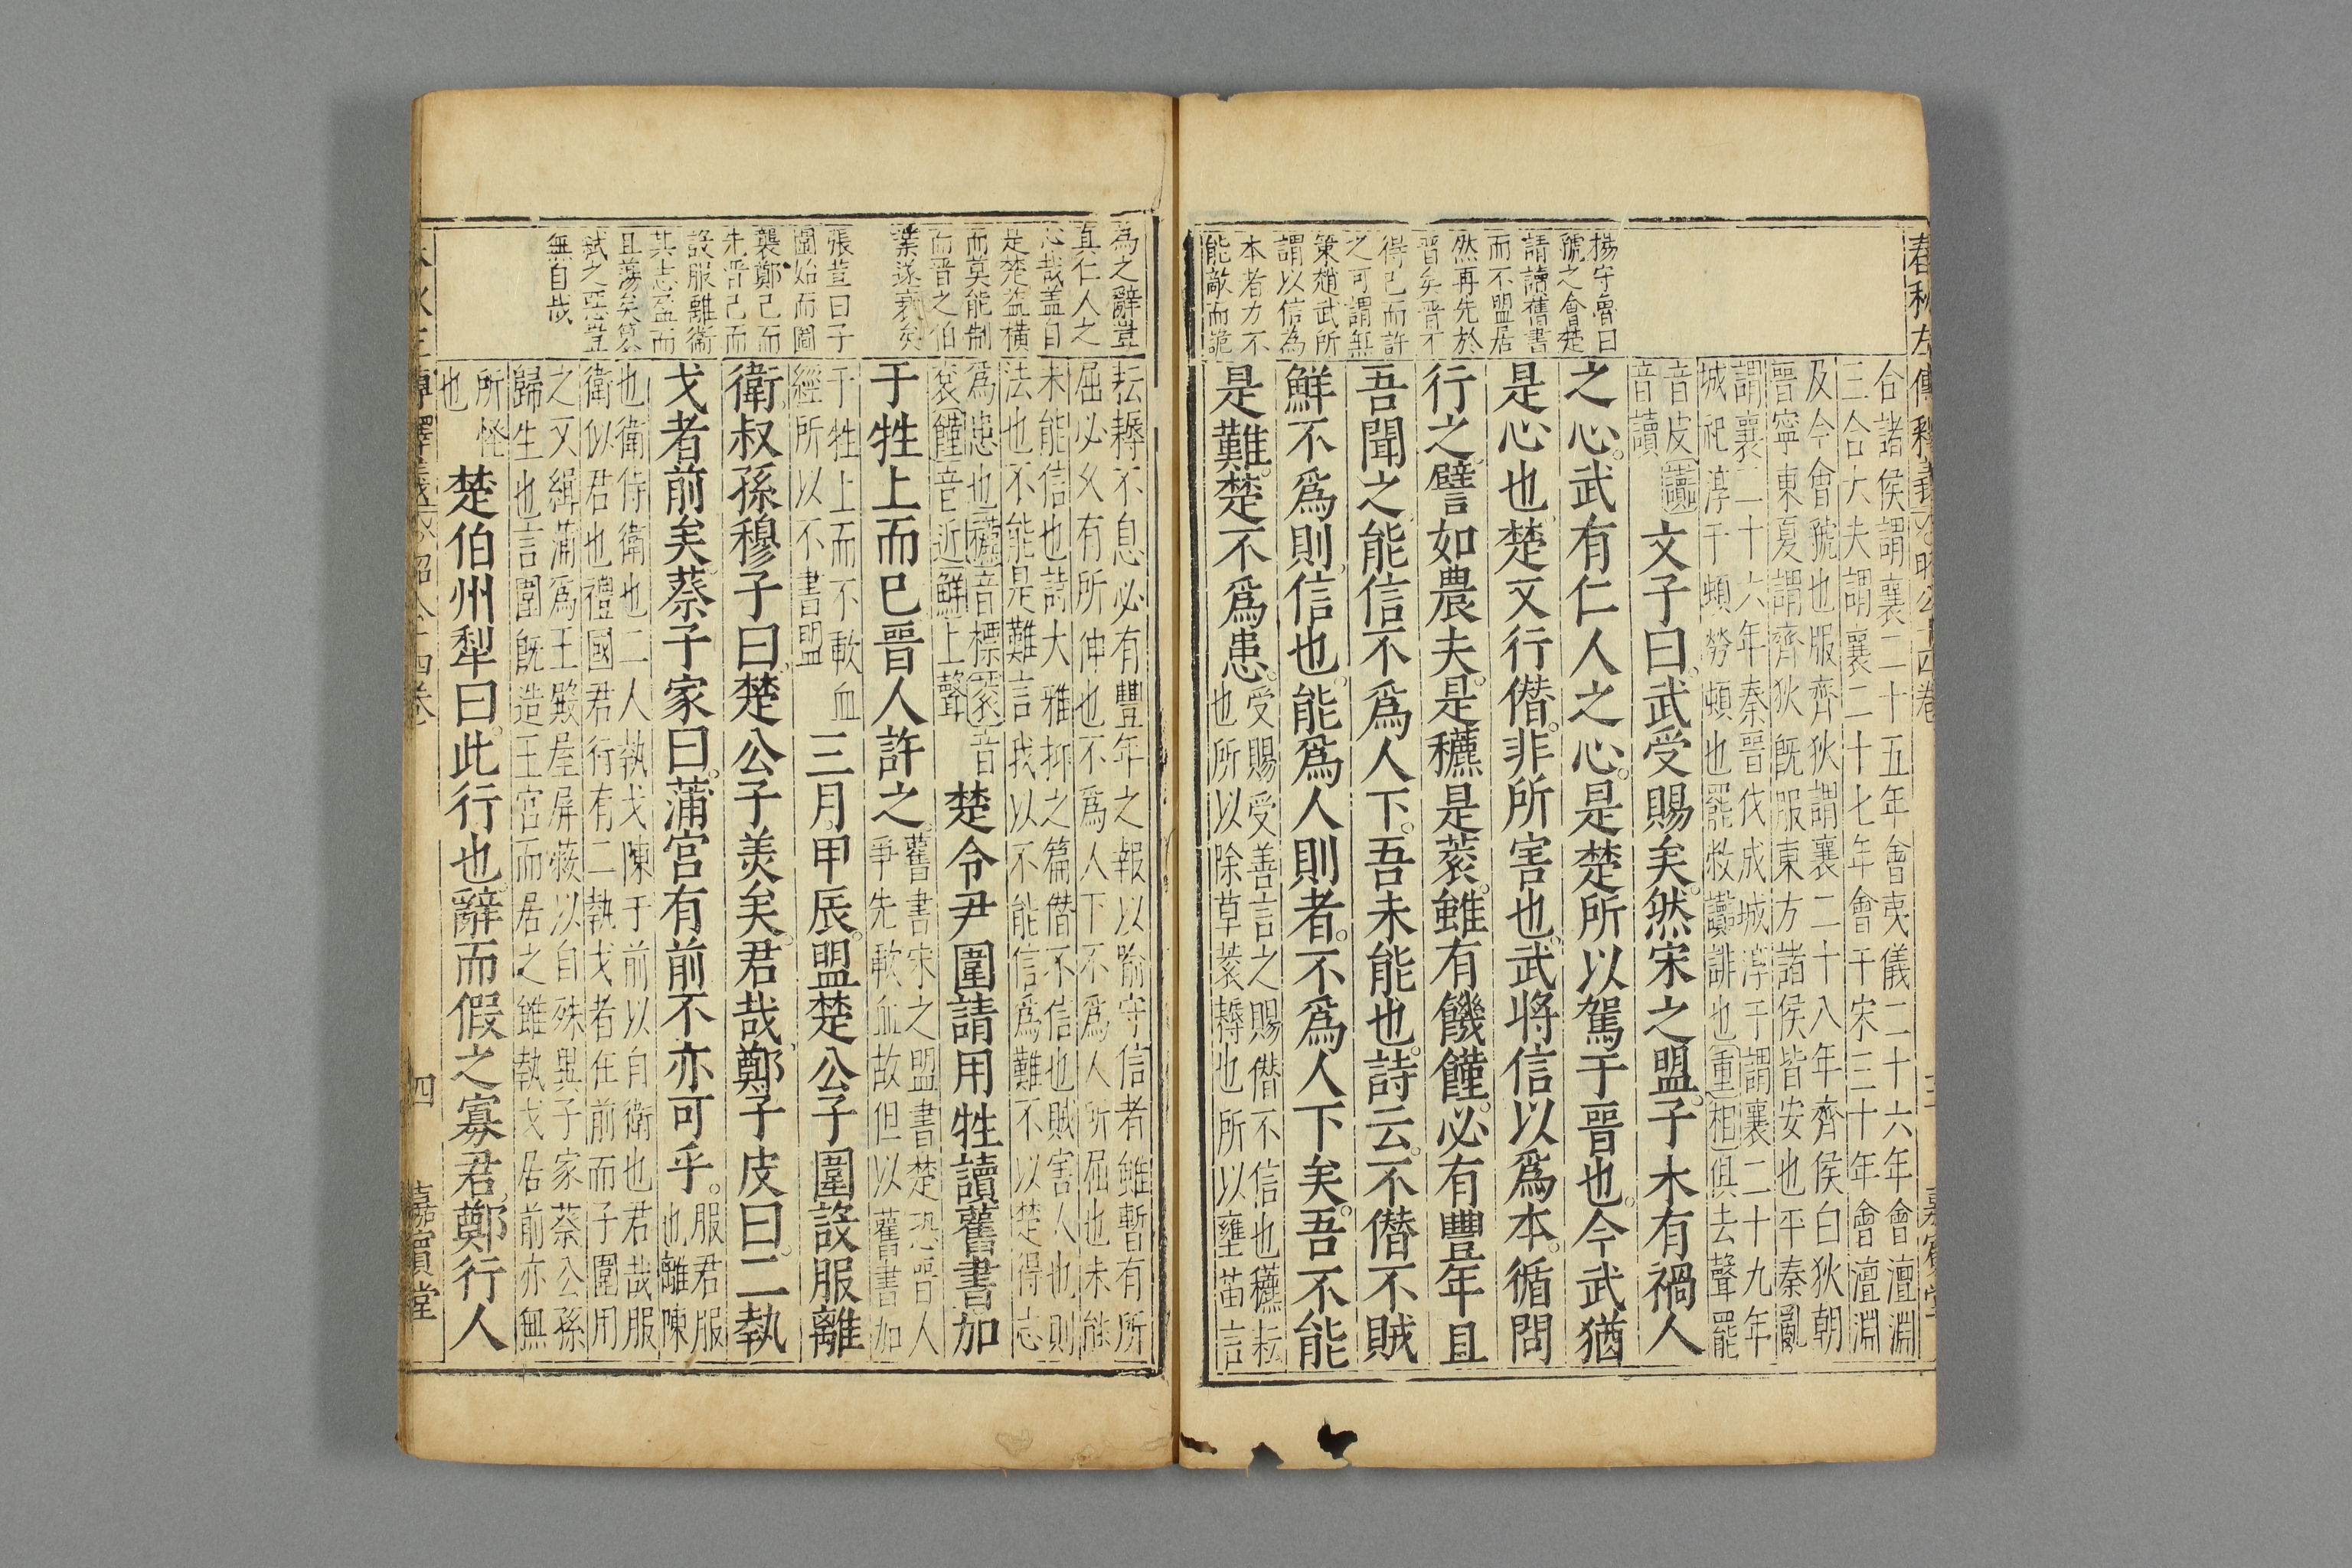 合諸侯謂襄二十五年會夷儀二十六年會澶淵
三合大夫謂襄二十七年會于宋三十年會澶淵
及今會虢也服齊狄謂襄二十八年齊侯白狄朝
晉寧東夏謂齊狄旣服東方諸侯皆安也平秦亂
謂襄二十六年秦晉伐成城淳于謂襄二十九年
城祀淳于頓勞頓也罷敝讟誹也重相俱去聲罷
音皮讟
音讀
文子曰武受賜矣。然宋之盟。子木有禍人
之心。武有仁人之心。是楚所以駕于晉也。今武猶
是心也楚又行僣。非所害也。武將信以爲本。循而
行之。譬如農夫。是穮是蔉。雖有饑饉。必有豐年且
吾聞之能信不爲人下。吾未能也。詩云。不僣不賊
鮮不爲則信也。能爲人則者。不爲人下矣。吾不能
是難。楚不爲患。
受賜受善言之賜僣不信也穮耘
也所以除草蔉耨也所以壅苗言
楊守魯曰
虢之會楚
請讀舊書
而不盟居
然再先於
晉矣晉不
得已而許
之可謂無
策趙武所
謂以信為
本者力不
能敵而詭
嘉賓堂
為之辭豈
真仁人之
心哉蓋自
是楚益橫
而莫能制
而晉之伯
業遂衰矣
張荳曰子
圍始而圖
襲鄭已而
先晉已而
設服離衞
其志盈而
且蕩矣篡
弑之惡豈
無自哉
耘耨不息必有豐年之報以喻守信者雖暫有所
屈必久有所伸也不爲人下不爲人所屈也未能
未能信也詩大雅抑之篇僣不信也賊害人也則
法也不能是難言我以不能信爲難不以楚得志
爲患也穮音標蔉音
衮饉音近鮮上聲
楚令尹圍請用牲讀舊書加
于牲上而巳晉人許之。
舊書宋之盟書楚恐晉人
爭先歃血故但以舊書加
于牲上而不歃血
經所以不書盟
三月甲辰。盟楚公子圍設服離
衛叔孫穆子曰楚公子美矣。君哉鄭子皮曰。二執
戈者前矣蔡子家曰。蒲宮有前不亦可乎。
服君服
也離陳
也衛侍衛也二人執戈陳于前以自衛也君哉服
衛似君也禮國君行有二執戈者在前而子圍用
之又緝蒲爲王殿屋屏蔽以自殊異子家蔡公孫
歸生也言圍旣造王宮而居之雖執戈居前亦無
所怪
也
楚伯州犁曰。此行也。辭而假之寡君鄭行人
四
嘉賓堂